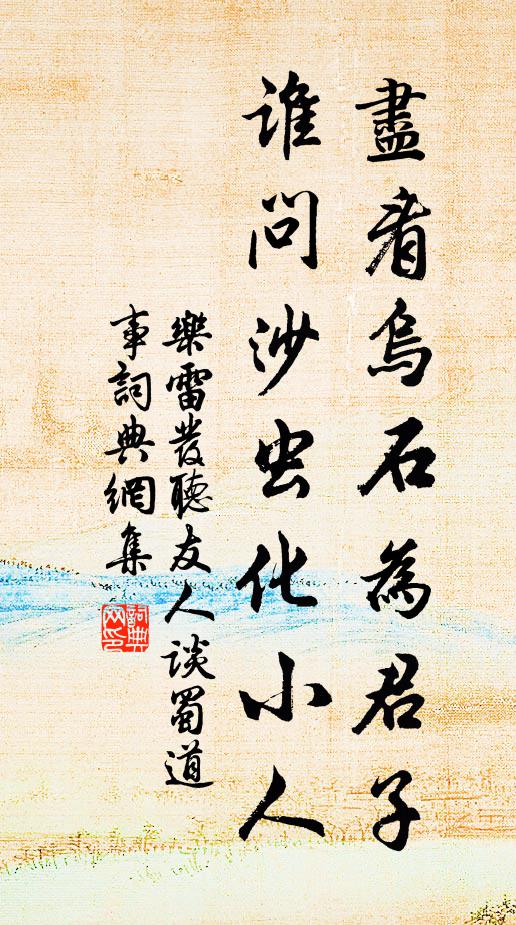 盡看烏石為君子
誰問沙虫化小人
樂雷發聽友人談蜀道
事詞典網集
詞典
网印